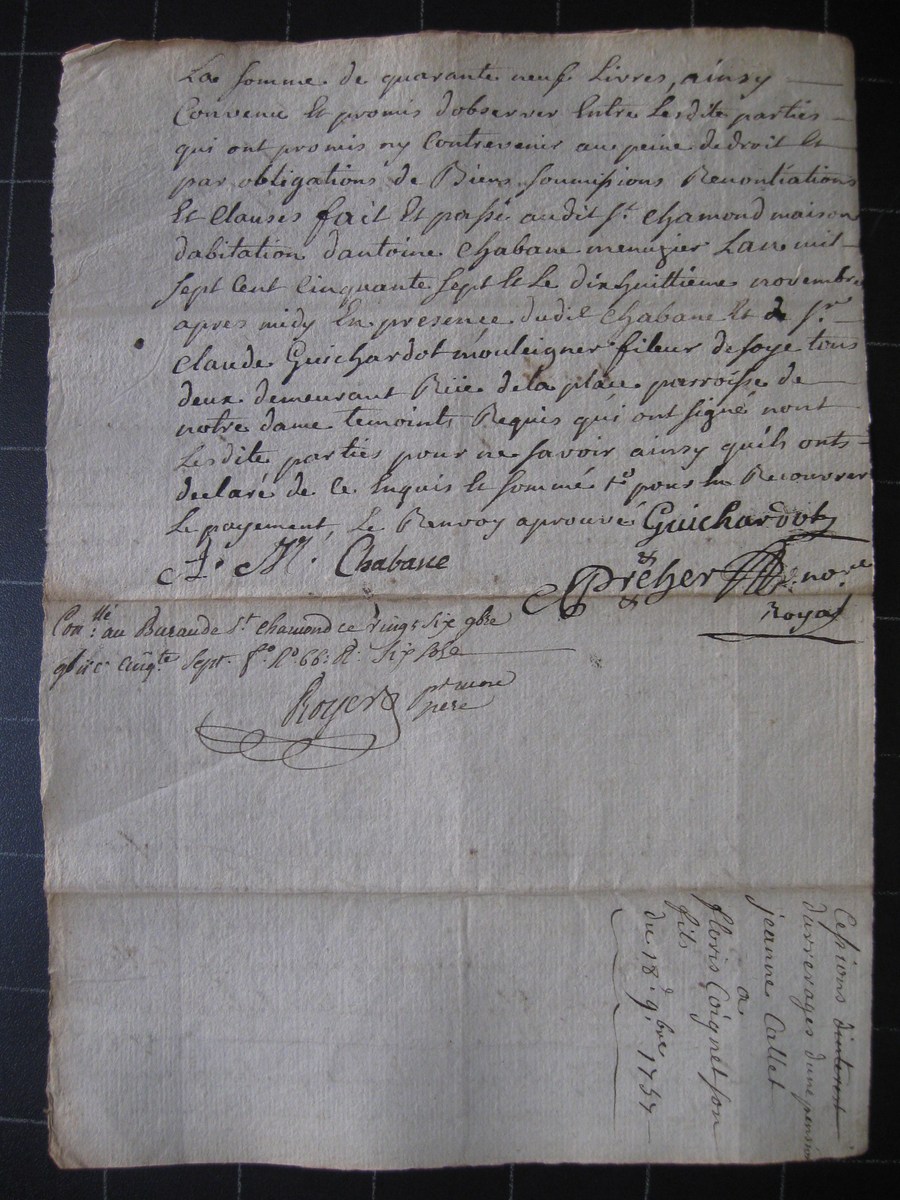 La somme de quarante neuf Livres, ainsy
Convenu Et promis dobserver Entre Lesdite parties
qui ont promis ny Contrevenir au peine de droit Et
par obligations de Biens soumissions Renontiations
Et Clauses fait Et passé audit St. chamond maison
dabitation dantoine Chabane menuzier Lan mil
sept Cent Cinquante sept Et Le dix huittieme novembre
apres midy En presence dudit Chabane Et de Sr.
Claude Guichardot mouleigner fileur de soye tous
deux demeurant Rüe de la place parroisse de
notre dame temoints Requis qui ont signé nont
Lesdite parties pour ne savoir ainsy quils onts
declaré de Ce Enquis Et sommé to. pour En Recouvrer
Le payement, Le Renvoy aprouvé Guichardot
Chabane
nore.
Royal
Conllé. au Bureau de St. chamond ce vingt six gbre
cinqte. Sept. fo. Ro. 66. R. Six
Royer pr mon
pere
Cessions dinterest
darrerages dune pension
jeanne Callet
a
floris Coignet son
fils
du 18d. 9bre. 1757